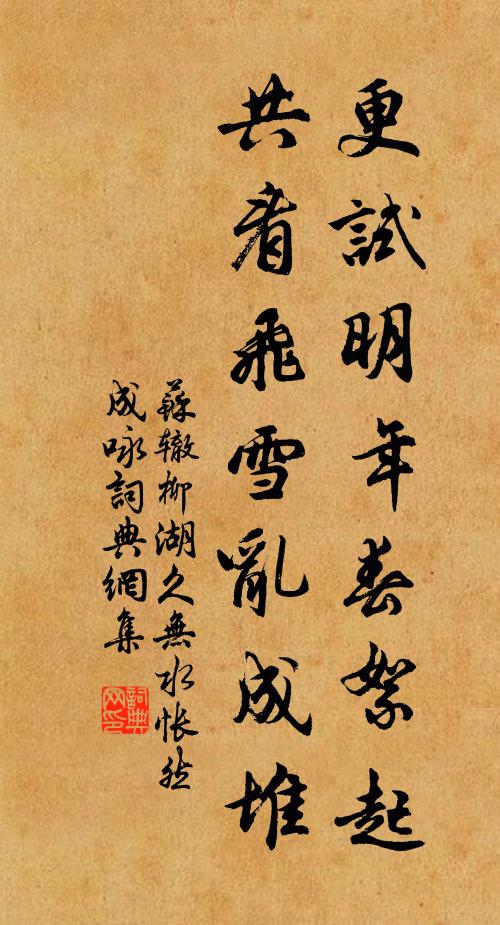 更試明年春絮起
共看飛雪亂成堆
蘇轍柳湖久無水悵然
成咏詞典網集
詞典
网印